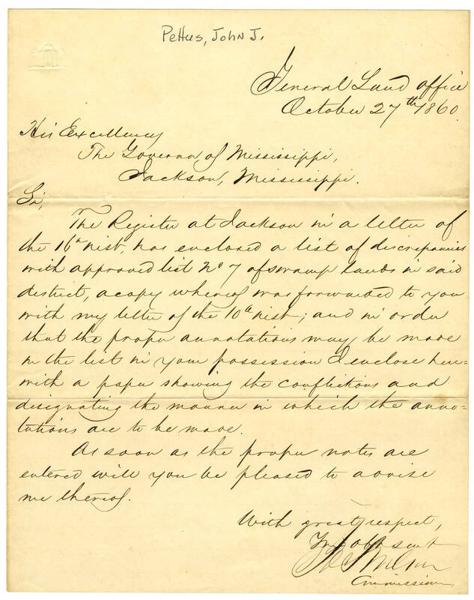 Pettus, John J.
General Land office
October 27th 1860.
His Excellency
The Governor of Mississippi,
Jackson, Mississippi.
Sir,
The Register at Jackson in a letter of
the 16th inst, has enclosed a list of discrepancies
with approved list No 7 of swamp lands in said
district, a copy whereof was forwarded to you
with my letter of the 10th inst; and in order
that the proper annotations may be made
in the list in your possession I enclose here-
with a paper showing the conflictions and
designating the manner in which the anno-
tations are to be made.
As soon as the proper notes are
entered will you be pleased to advise
me thereof.
With great respect,
Your obt servt
Wilson
Commissioner